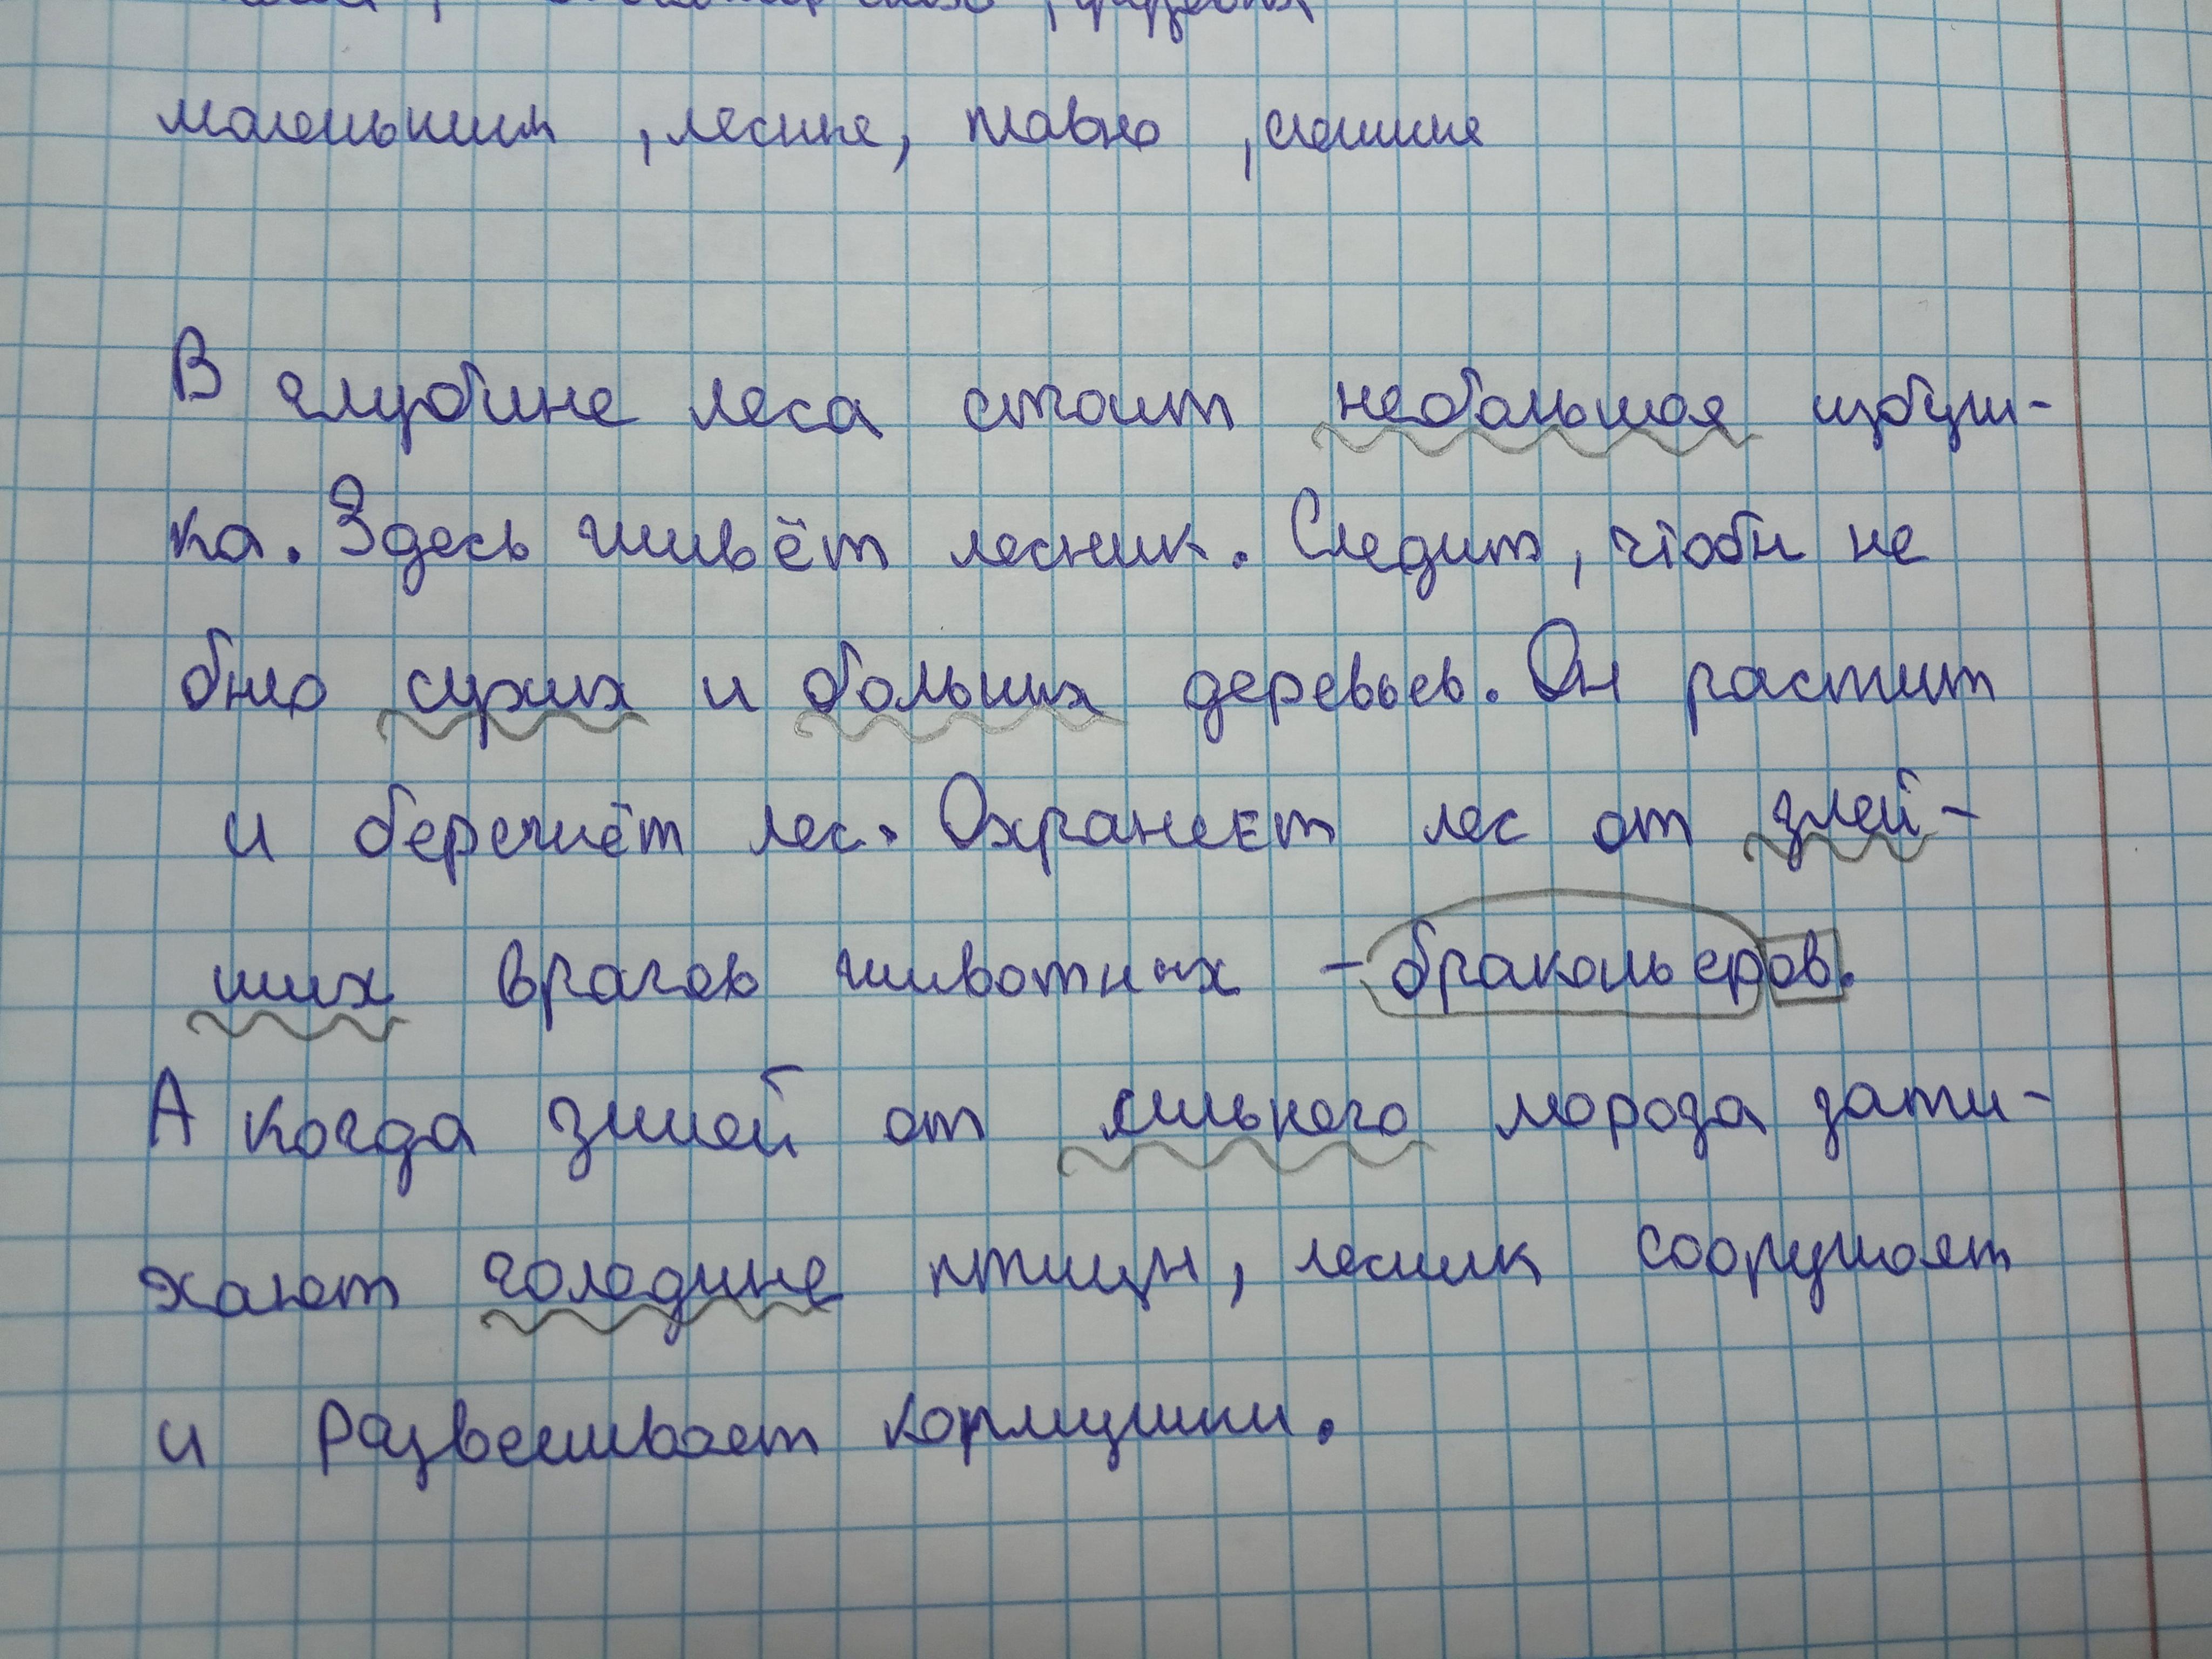 маленьким , лесные, плавно , слышие
В глубине леса стоит небольшая избуш-
ка. Здесь живёт лесник. Следит, чтобы не
было сухих и больших деревьев. Он растит
и бережёт лес. Охраняет лес от злей-
ших врагов животных - браконьеров.
А когда зимой от сильного мороза зати-
хают голодные птицы, лесник сооружает
и развешивает кормушки.